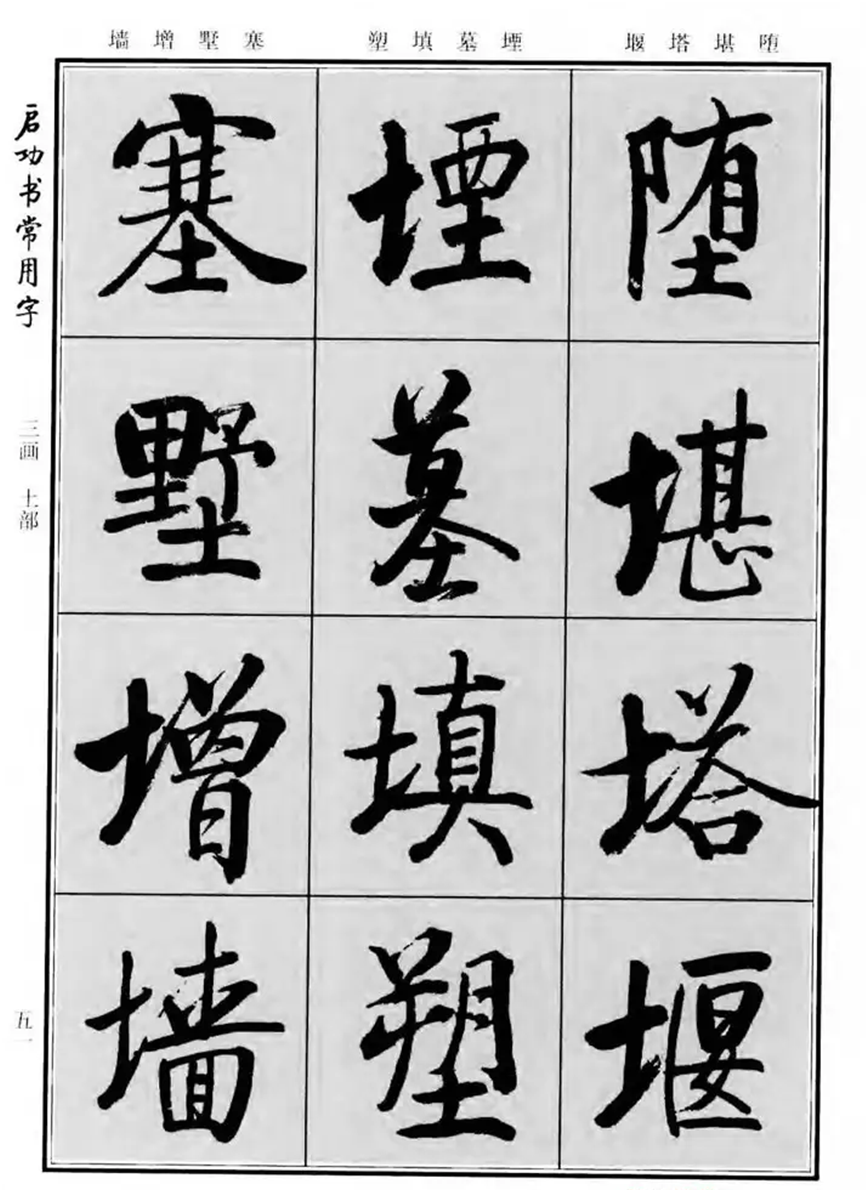 墙增墅塞 塑填墓堙 堰塔堪堕
启功书常用字
三画 土部
五一
堕
堪
塔
堰
堙
墓
填
塑
塞
墅
增
墙